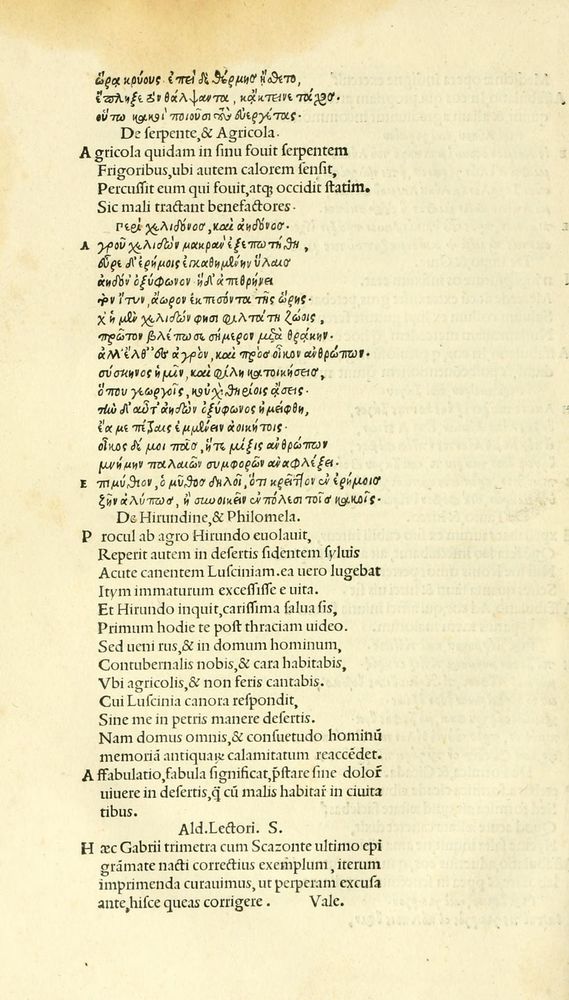 ὥρα κρύους ἐπεὶ δὲ θέρμης ᾔσθετο,
ἔπληξε τὸν θάλψαντα, κἄκτεινε τάχος.
οὕτω κακοὶ ποιοῦσι τοὺς εὐεργέτας.
De serpente,& Agricola.
A gricola quidam in sinu fouit serpentem
Frigoribus,ubi autem calorem sensit,
Percussit eum qui fouit,atq; occidit statim.
Sic mali tractant benefactores.
Περὶ χελιδόνος, καὶ ἀηδόνος.
Α γροῦ χελιδὼν μακρὰν ἐξεπωτήθη,
εὗρε δ' ἐρήμοις ἐγκαθημένην ὕλαις
ἀηδόν' ὀξύφωνον ἡ δ' ἀπεθρήνει
τὸν ἴτυν, ἄωρον ἐκπεσόντα τῆς ὥρης.
χἡ μὲν χελιδών φησι φιλτάτη ζώοις,
πρῶτον βλέπω σε σήμερον μετὰ θράκην.
ἀλλ' ἔλθ' ἐς ἀγρὸν, καὶ πρὸς οἶκον ἀνθρώπων.
σύσκηνος ἡμῖν, καὶ φίλη κατοικήσεις,
ὅπου γεωργοῖς, κοὐχὶ θηρίοις ᾄσεις.
τὴν δ' αὖτ' ἀηδὼν ὀξύφωνος ἠμείφθη,
ἔα με πέτραις ἐμμένειν ἀοικήτοις.
οἶκος δέ μοι πᾶς, ἥτε μίξις ἀνθρώπων
μνήμην παλαιῶν συμφορῶν ἀναφλέξει.
Ε πιμύθιον, ὁ μῦθος δηλοῖ, ὅτι κρεῖττον ἐν ἐρήμοις
ζῆν ἀλύπως, ἢ συνοικεῖν ἐν πόλεσι τοῖς κακοῖς.
De Hirundine,& Philomela.
P rocul ab agro Hirundo euolauit,
Reperit autem in desertis sidentem syluis
Acute canentem Lusciniam.ea uero lugebat
Itym immaturum excessisse e uita.
Et Hirundo inquit,carissima salua sis,
Primum hodie te post thraciam uideo.
Sed ueni rus,& in domum hominum,
Contubernalis nobis,& cara habitabis,
Vbi agricolis,& non feris cantabis.
Cui Luscinia canora respondit,
Sine me in petris manere desertis.
Nam domus omnis,& consuetudo hominū
memoriā antiquaꝝ calamitatum reaccēdet.
A ffabulatio,fabula significat,p̄stare sine dolor̄
uiuere in desertis,q̄ cū malis habitar̄ in ciuita
tibus.
Ald.Lectori. S.
H æc Gabrii trimetra cum Scazonte ultimo epi
grāmate nacti correctius exemplum, iterum
imprimenda curauimus, ut perperam excusa
ante,hisce queas corrigere. Vale.